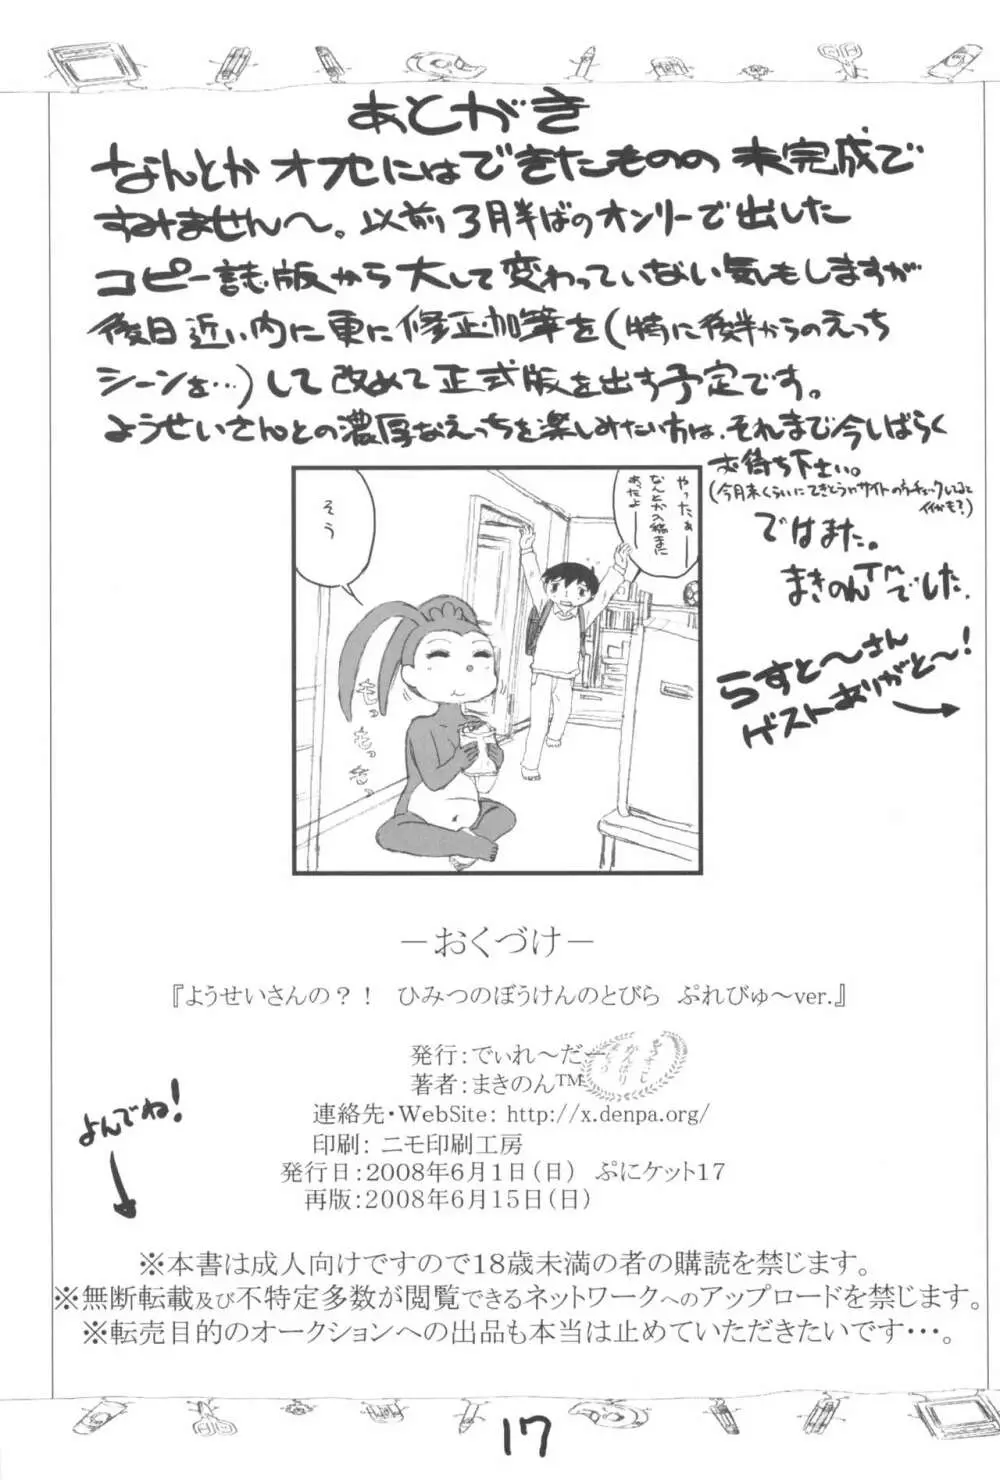 あとがき
なんとかオフセにはできたものの 未完成で
すみません〜。以前3月半ばのオンリーで出した
コピー誌版から大して変わっていない気もしますが
後日近い内に更に修正・加筆を(特に後半からのえっち
シーンを…)して改めて正式版を出す予定です。
ようせいさんとの濃厚なえっちを楽しみたい方は、それまで今しばらく
お待ち下さい。
(今月末くらいにてきとうにサイトの方チェックしてると
イイかも?)
ではまた。
まきのんTMでした。
らすと〜さん
ゲストありがと〜!
やったぁー
なんとか入稿まに
あったよー
そう
もっ
もっ
もっ
－おくづけ－
『ようせいさんの？！　ひみつのぼうけんのとびら　ぷれびゅ～ver.』
発行：でぃれ～だー
著者：まきのん™
連絡先・WebSite: http://x.denpa.org/
印刷：ニモ印刷工房
発行日：2008年6月1日（日）　ぷにケット17
再版：2008年6月15日（日）
よんでね!
※本書は成人向けですので18歳未満の者の購読を禁じます。
※無断転載及び不特定多数が閲覧できるネットワークへのアップロードを禁じます。
※転売目的のオークションへの出品も本当は止めていただきたいです・・・。
17